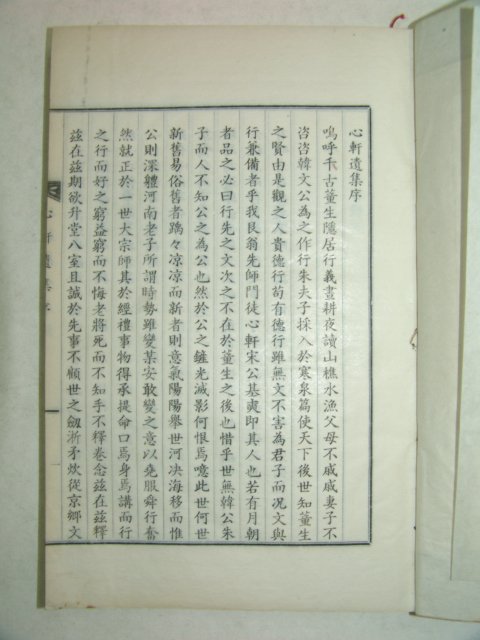 心軒遺集序
嗚呼千古董生隱居行義晝耕夜讀山樵水漁父母不戚戚妻子不
咨咨韓文公為之作行朱夫子採入於寒泉篇使天下後世知董生
之賢由是觀之人貴德行苟有德行雖無文不害為君子而况文與
行兼備者乎我艮翁先師門徒心軒宋公基奭即其人也若有月朝
者品之必曰行先之文次之不在於董生之後也惜乎世無韓公朱
子而人不知公之為公也然於公之鏟光滅影何恨焉噫此世何世
新舊易俗舊者踽々凉凉而新者則意氣陽陽舉世河决海移而惟
公則深軆河南老子所謂時勢雖變某安敢變之意以堯服舜行奮
然就正於一世大宗師其於經禮事物得承提命口焉身焉講而行
之行而好之窮益窮而不悔老將死而不知乎不釋卷念兹在兹釋
兹在兹期欲升堂八室且誠於先事不顧世之劒淅矛炊從京鄉文
心軒遺集序
一